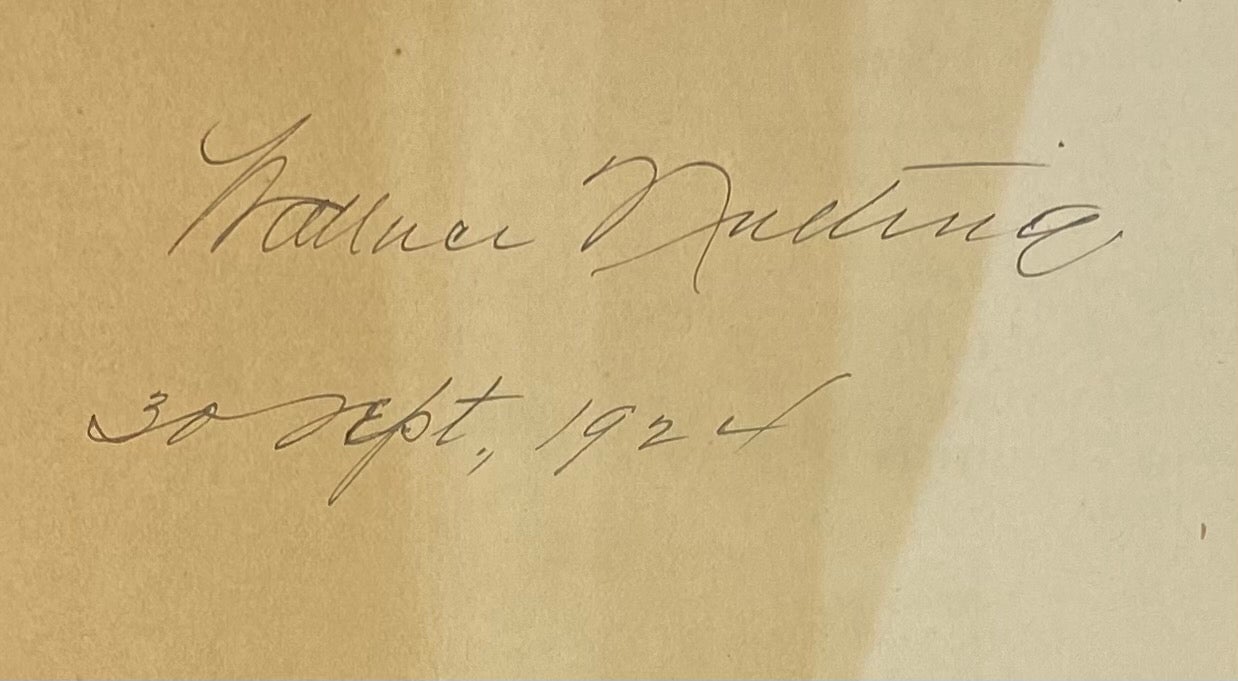 Wallace Nutting
30 Sept., 1924